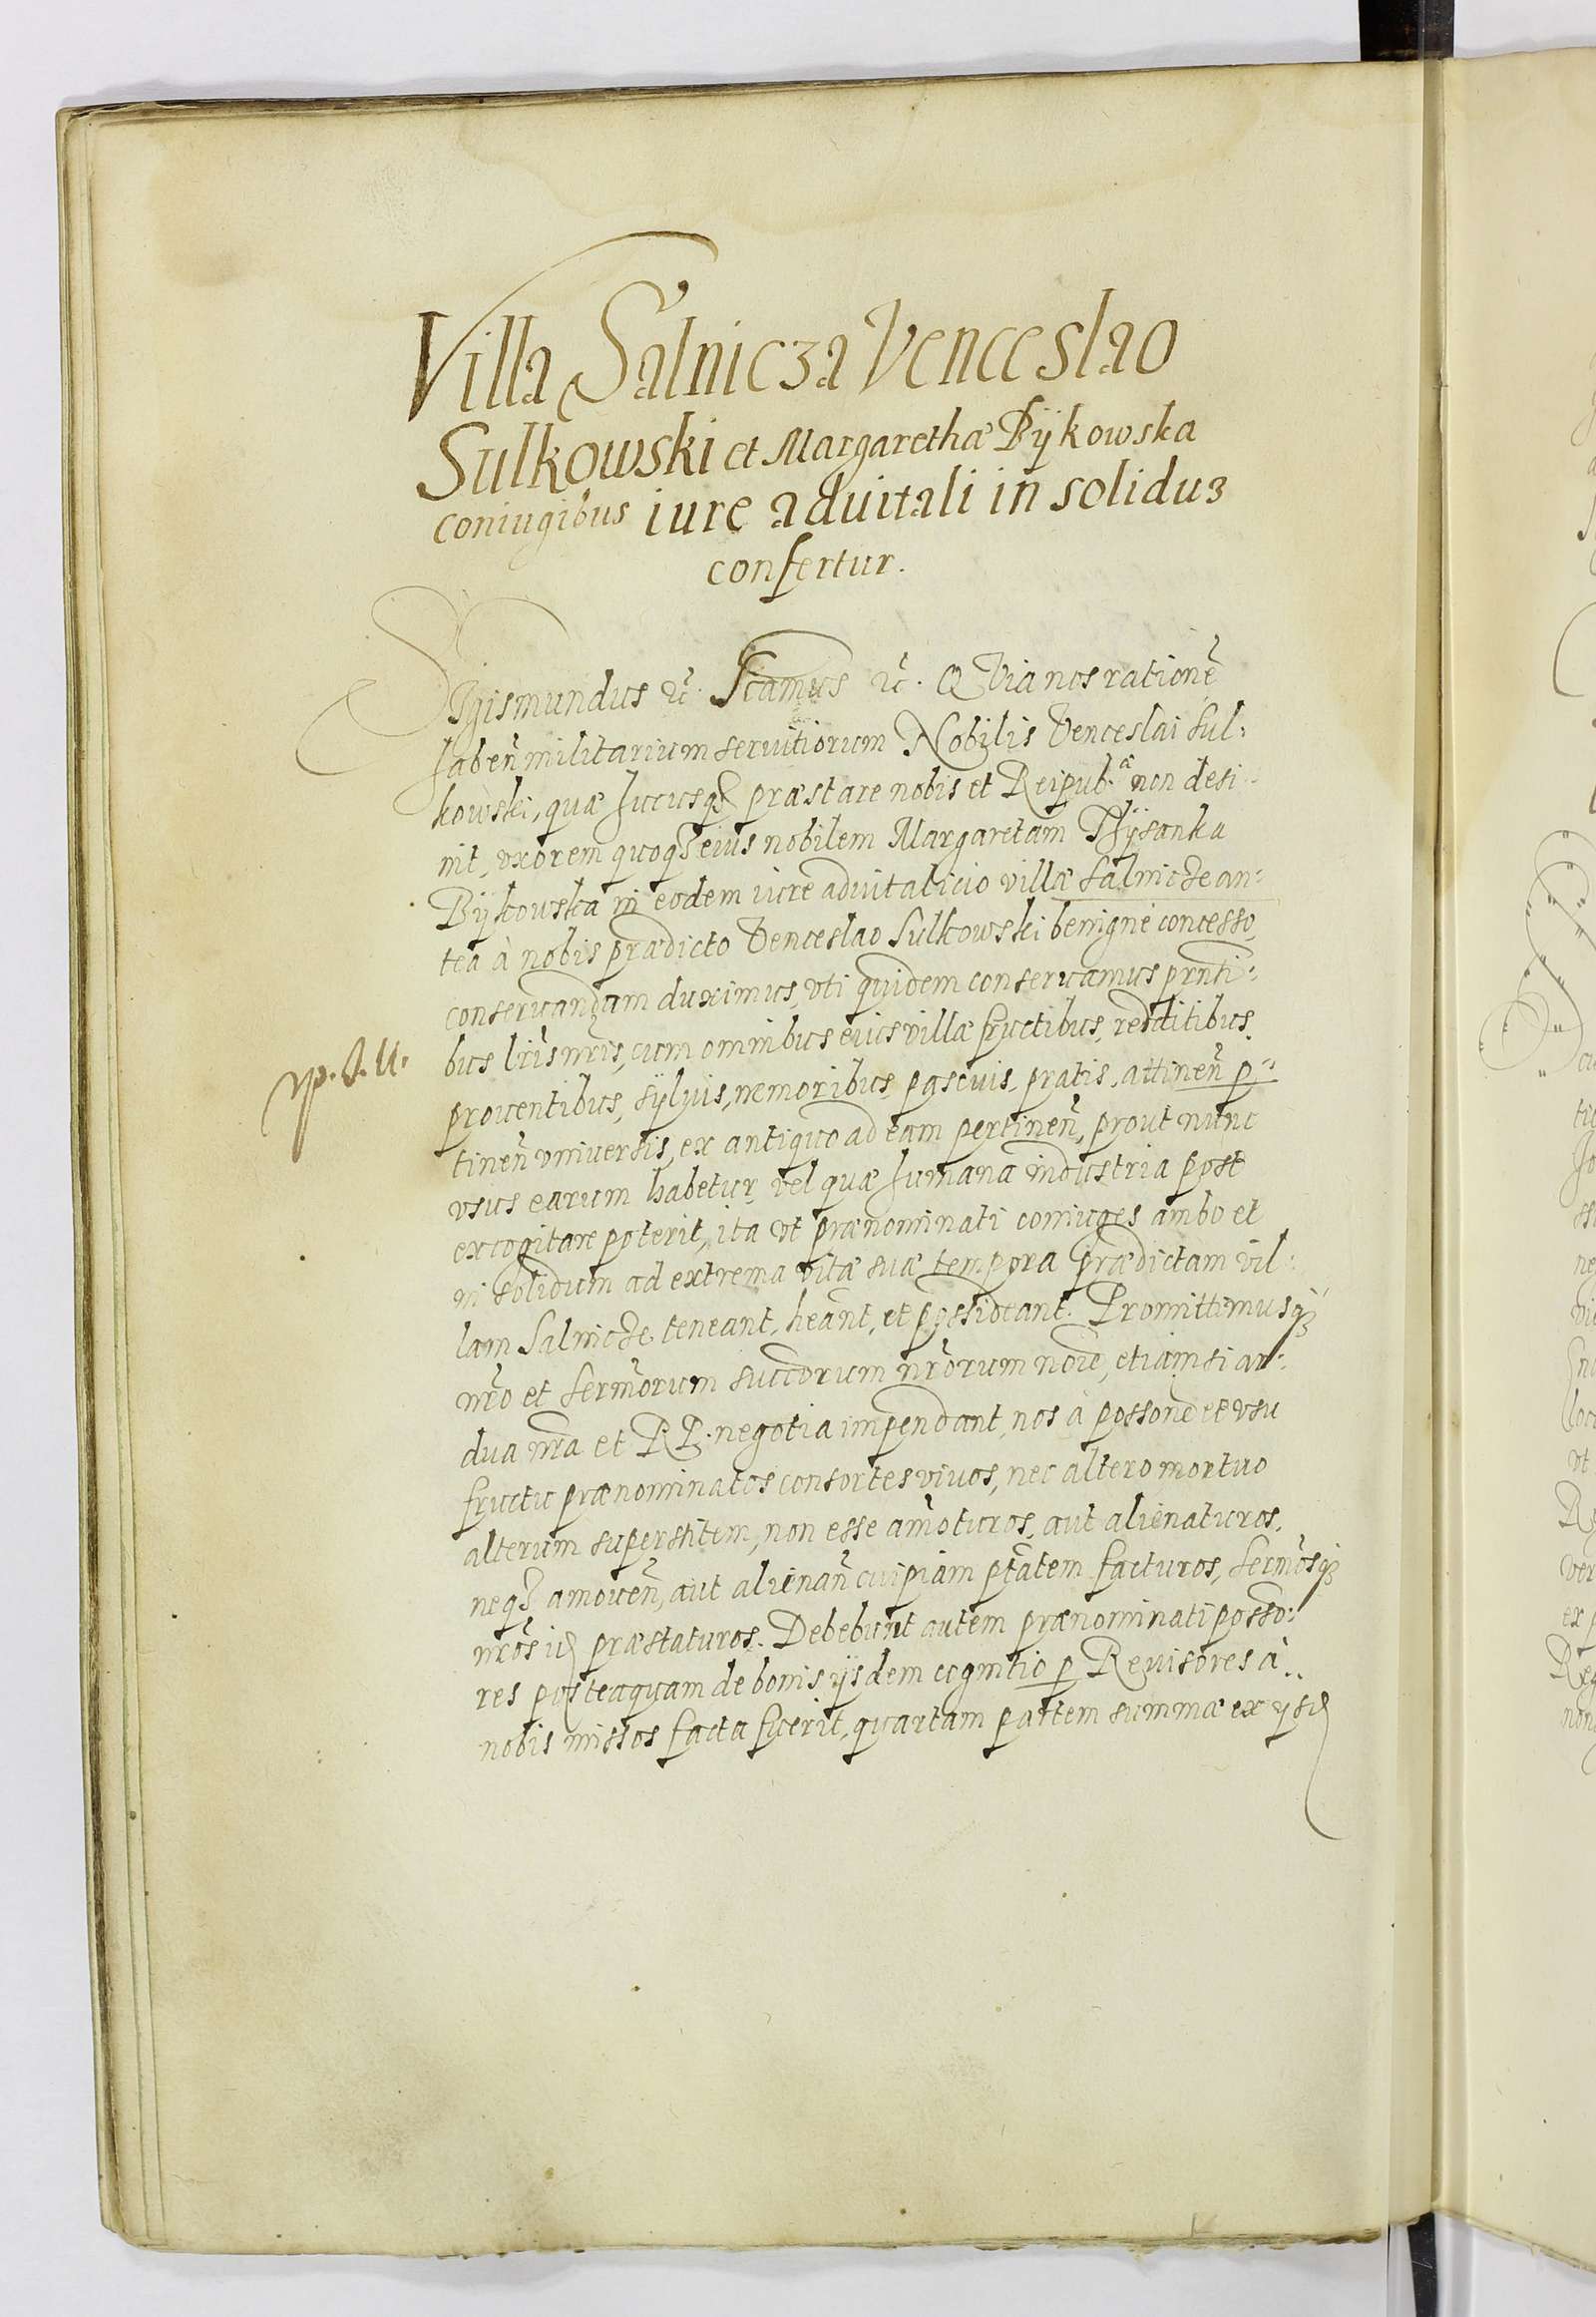 Villa Salnicza Venceslao
Sulkowski et Margarethæ Bÿkowska
coniugibus iure aduitali in soliduʒ
confertur.
Sigismundus ꝛc̃. Scamus ꝛc̃. QVia nos rationẽ
habeñ militarium seruitiorum Nobilis Venceslai Sul:
kowski, quæ hucusqꝫ præstare nobis et Reipub.ᵃ non desi
nit, vxorem quoqꝫ eius nobilem Margaretam
Bÿkowska in eodem iure aduitalicio villæ Salnicze an:
tea à nobis prædicto Venceslao Sulkowski benigne concesso,
conseruandam duximus, vti quidem conseruamus pñti:
bus lr̃is nr̃is, cum omnibus eius villæ fructibus, redditibus,
prouentibus, sÿluis, nemoribus, pascuis, pratis, attineñ p:
tineñ vniuersis, ex antiquo ad eam pertineñ, prout nunc
vsus earum habetur, vel quæ humana industria post
excogitare poterit, ita vt prænominati coniuges ambo et
in solidum ad extrema vitæ suæ tempora prædictam vil:
lam Salnicze teneant, heãnt, et possideant. Promittimusqꝫ
nr̃o et Serm̃orum succorum nr̃orum noĩe, etiamsi ar:
dua nr̃a et RP. negotia impendant, nos à possonẽ et vsu
fructu prænominatos consortes viuos, nec altero mortuo
alterum superstitem, non esse am̃oturos, aut alienaturos,
neqꝫ amoueñ, aut alienañ cuipiam ptãtem facturos, Serm̃osqꝫ
nr̃os id præstaturos. Debebunt autem prænominati posso:
res posteaquam de bonis ijsdem cognitio p Reuisores à
nobis missos facta fuerit, quartam partem summæ ex ysd